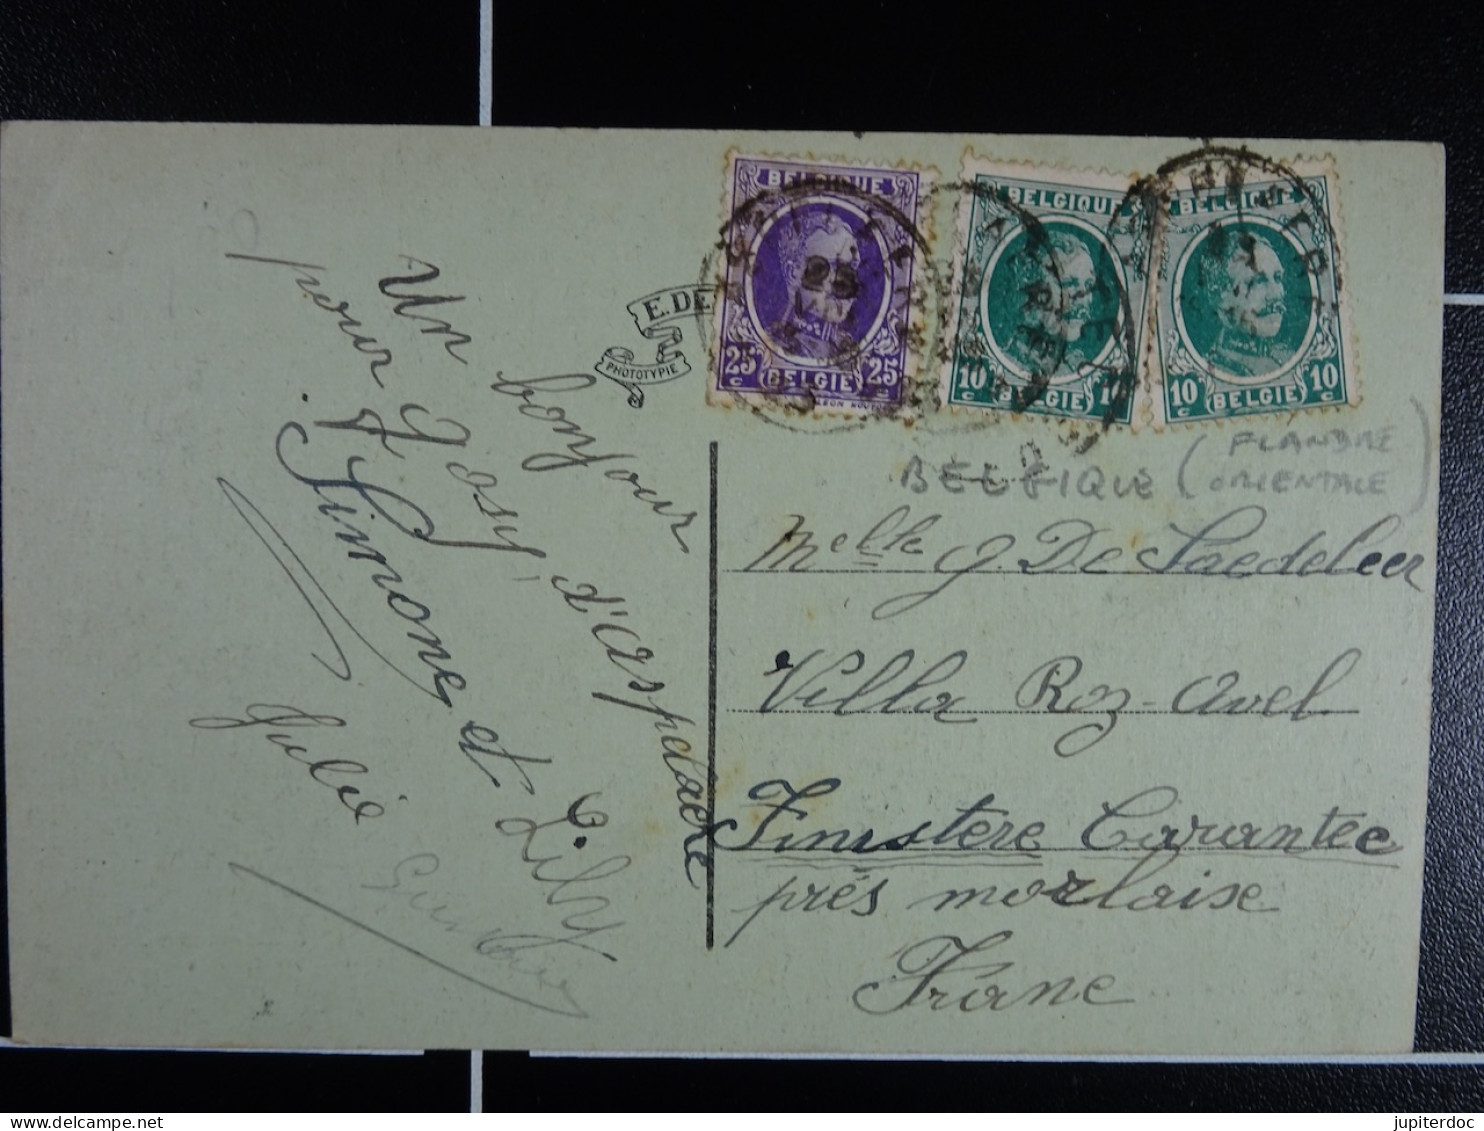 Un bonjour
pour Josy, d'Aspelaere
Simone et Lily
Julie
E. DE
PHOTOTYPIE
BELGIQUE
25 c 25 c
BELGIE
BELGIQUE
10 c
BELGIE
BELGIQUE
10 c 10 c
BELGIE
BELGIQUE (FLANDRE
ORIENTALE)
Melle J. De Saedeleer
Villa Roz-Avel
Finistère Carantec
près morlaise
Frane
jupiterdoc